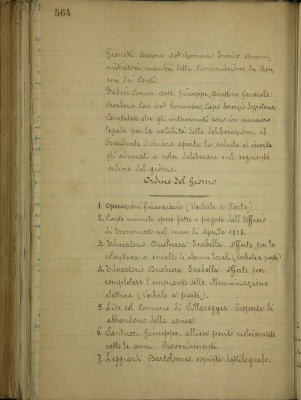 564
Gianetti Barone Avv. Romano Enrico, Ammi
nistratori membri della Commissione dei Con
ti dei Conti.
Fabris Comm. Dott. Giuseppe, Direttore Generale.
Barberio Cav. Avv. Tommaso, Capo Servizio Segreteria
Constatato che gli intervenuti sono in numero
legale per la validità delle deliberazioni, il
Presidente dichiara aperta la seduta e invita
gli adunati a voler deliberare sul seguente
ordine del giorno.
Ordine del Giorno
1. Operazioni finanziarie (Verbale a parte)
2. Conto minute spese fatte e pagate dall'Ufficio
di Economato nel mese di Aprile 1913.
3. Educatorio Duchessa Isabella. Offerte per la
coloritura a smalti di alcuni locali (Verbale a parte)
4. Educatorio Duchessa Isabella. Offerte per
completare l'impianto della illuminazione
elettrica (Verbale a parte).
5. Lite col Comune di Proposta di
abbandono della causa.
6. Santucci Giuseppe, allievo perito richiamato
sotto le armi. Provvedimenti.
7. Leggiardi Bartolomeo, copista dattilografo.